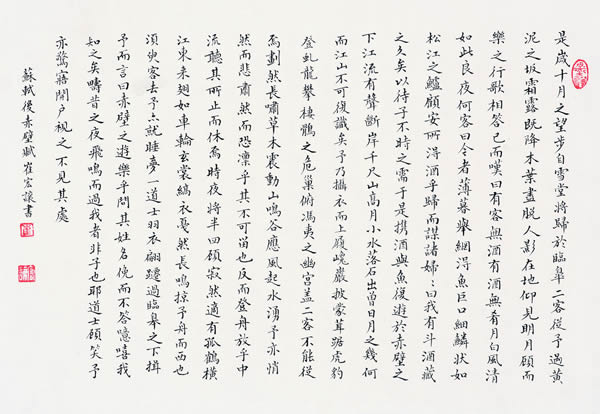 是歲十月之望步自雪堂將歸於臨皋二客從予過黃
泥之坂霜露既降木葉盡脫人影在地仰見明月顧而
樂之行歌相答已而嘆曰有客無酒有酒無肴月白風清
如此良夜何客曰今者薄暮舉網得魚巨口細鱗狀如
松江之鱸顧安所得酒乎歸而謀諸婦〻曰我有斗酒藏
之久矣以待子不時之需于是携酒與魚復遊於赤壁之
下江流有聲斷岸千尺山高月小水落石出曾日月之幾何
而江山不可復識矣予乃攝衣而上履巉巖披蒙茸踞虎豹
登虬龍攀棲鶻之危巢俯馮夷之幽宮蓋二客不能從
焉劃然長嘯草木震動山鳴谷應風起水湧予亦悄
然而悲肅然而恐凜乎其不可留也反而登舟放乎中
流聽其所止而休焉時夜將半四顧寂然適有孤鶴橫
江東來翅如車輪玄裳縞衣戛然長鳴掠予舟而西也
須臾客去予亦就睡夢一道士羽衣翩躚過臨皋之下揖
予而言曰赤壁之遊樂乎問其姓名俛而不答噫嘻我
知之矣疇昔之夜飛鳴而過我者非子也耶道士顧笑予
亦驚寤開户視之不見其處
蘇軾後赤壁賦崔宏讓書